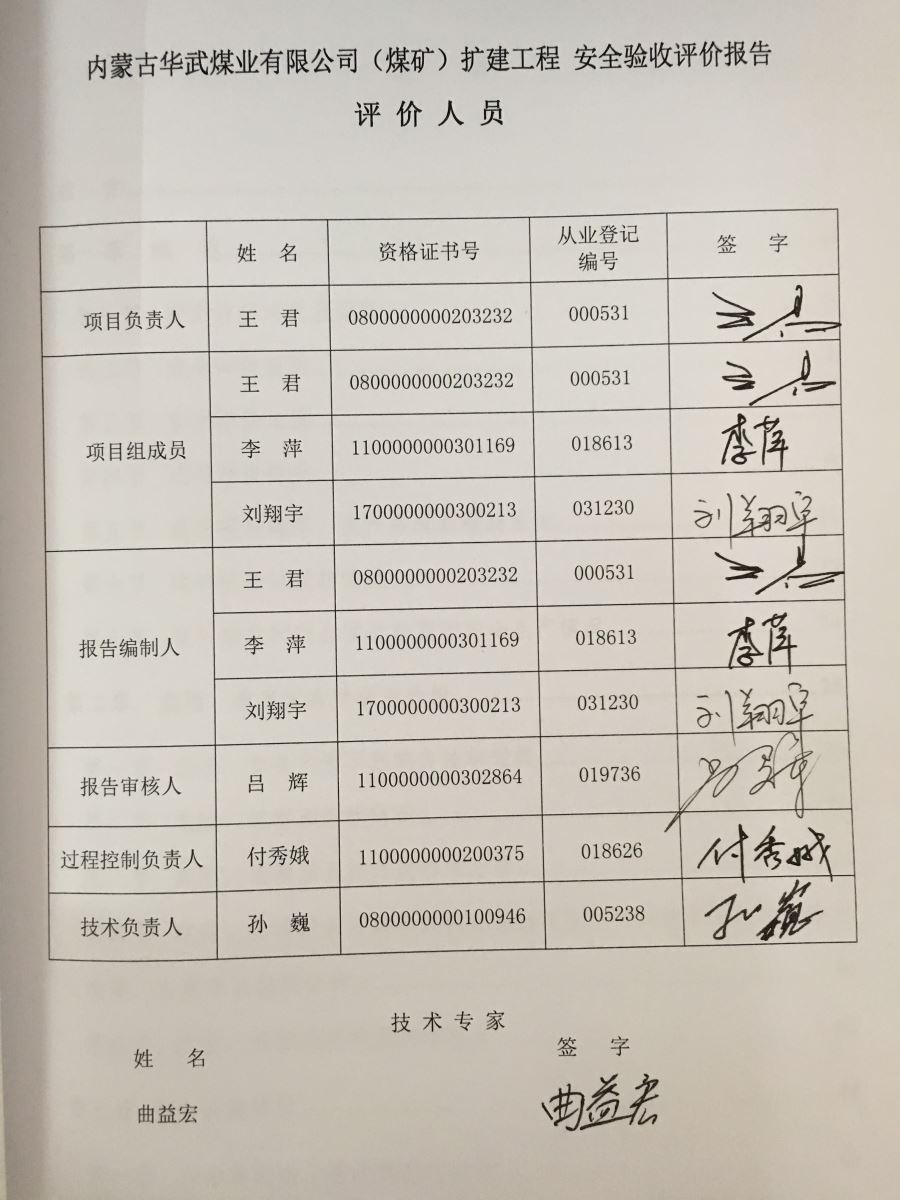 内蒙古华武煤业有限公司（煤矿）扩建工程 安全验收评价报告
评 价 人 员
姓 名 资格证书号 从业登记编号 签 字
项目负责人 王 君 0800000000203232 000531
项目组成员 王 君 0800000000203232 000531
李 萍 1100000000301169 018613 李萍
刘翔宇 1700000000300213 031230 刘翔宇
报告编制人 王 君 0800000000203232 000531
李 萍 1100000000301169 018613 李萍
刘翔宇 1700000000300213 031230 刘翔宇
报告审核人 吕 辉 1100000000302864 019736
过程控制负责人 付秀娥 1100000000200375 018626 付秀娥
技术负责人 孙 巍 0800000000100946 005238 孙巍
技 术 专 家
姓 名 签 字
曲益宏 曲益宏